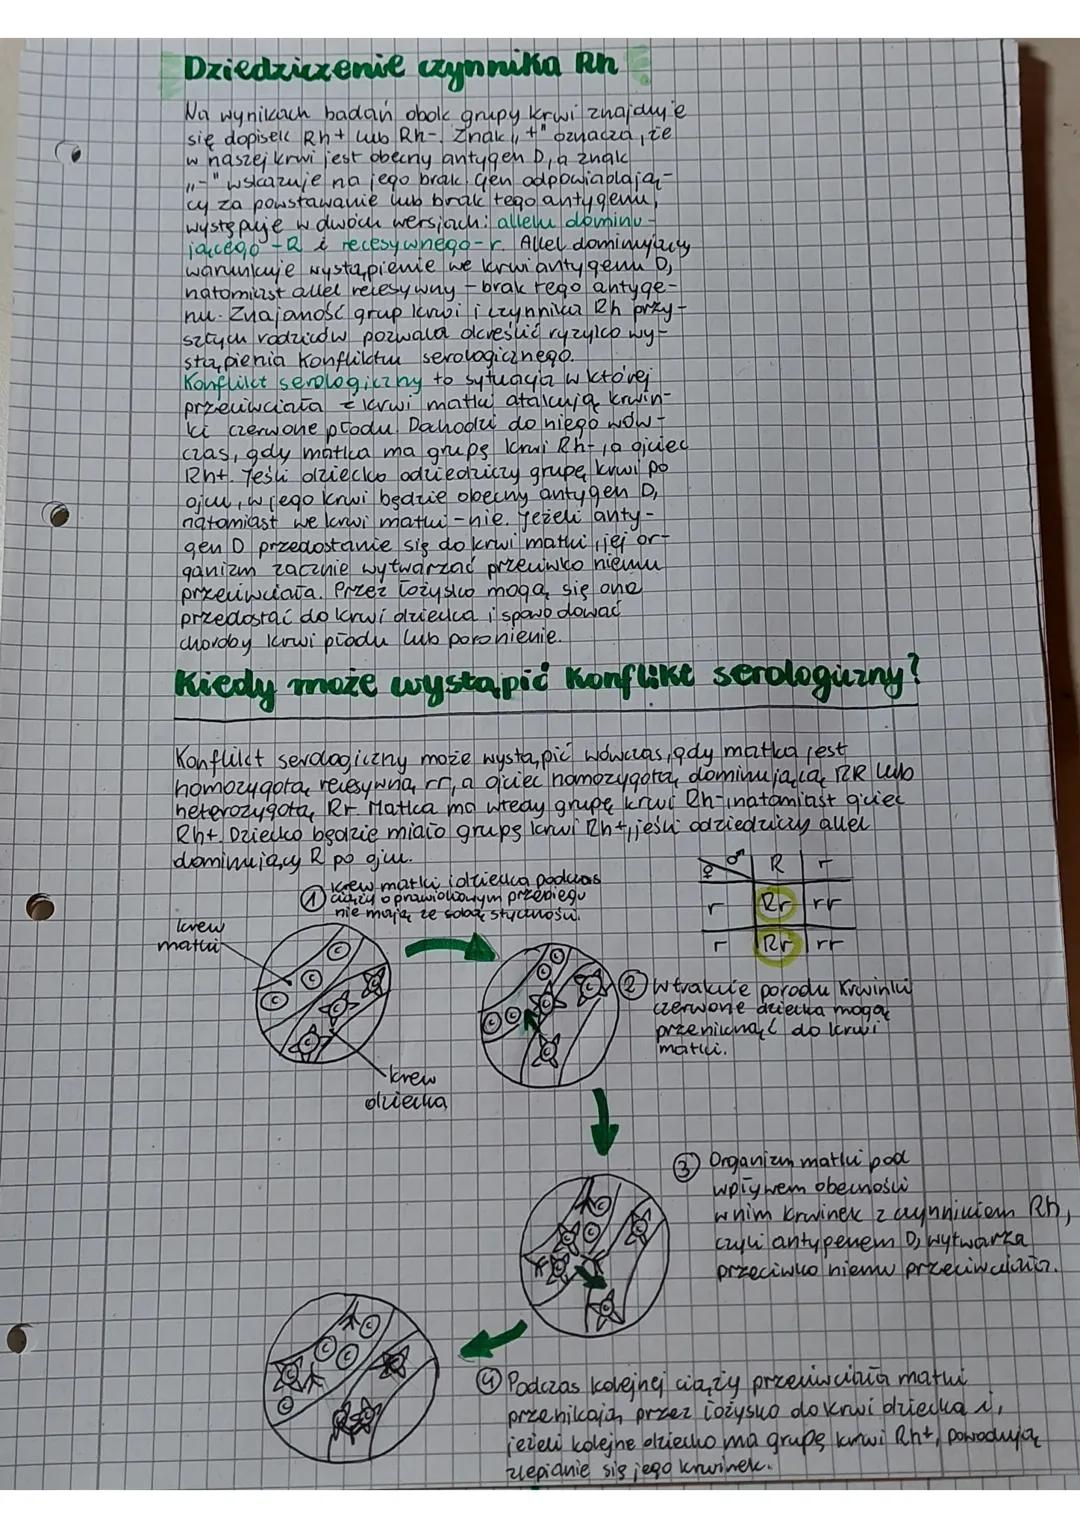 Dziedziczenie czynnika Rh
Na wynikach badań obok grupy krwi znajduje
się dopisek Rh+ lub Rh-. Znak „+" oznacza, że
w naszej krwi jest obecny antygen D, a znak
„-" wskazuje na jego brak. Gen odpowiadają-
cy za powstawanie lub brak tego antygenu,
występuje w dwóch wersjach: allelu dominu-
jącego -R i recesywnego -r. Allel dominujący
warunkuje wystąpienie we krwi antygenu D,
natomiast allel recesywny - brak tego antyge-
nu. Znajomość grup krwi i czynnika Rh przy-
szłych rodziców pozwala określić ryzyko wy-
stąpienia konfliktu serologicznego.
Konflikt serologiczny to sytuacja w której
przeciwciała z krwi matki atakują krwin-
ki czerwone płodu. Dochodzi do niego wów-
czas, gdy matka ma grupę krwi Rh-, a ojciec
Rh+. Jeśli dziecko odziedziczy grupę krwi po
ojcu, w jego krwi będzie obecny antygen D,
natomiast we krwi matki - nie. Jeżeli anty-
gen D przedostanie się do krwi matki, jej or-
ganizm zacznie wytwarzać przeciwko niemu
przeciwciała. Przez łożysko mogą się one
przedostać do krwi dziecka i spowodować
choroby krwi płodu lub poronienie.
Kiedy może wystąpić konflikt serologiczny?
Konflikt serologiczny może wystąpić wówczas, gdy matka jest
homozygotą recesywną rr, a ojciec homozygotą dominującą RR lub
heterozygotą Rr. Matka ma wtedy grupę krwi Rh-, natomiast ojciec
Rh+. Dziecko będzie miało grupę krwi Rh+, jeśli odziedziczy allel
dominujący R po ojcu.
♀ ♂ R r
r Rr rr
r Rr rr
① krew matki i dziecka podczas
ciąży o prawidłowym przebiegu
nie mają ze sobą styczności.
krew
matki
krew
dziecka
② W trakcie porodu krwinki
czerwone dziecka mogą
przeniknąć do krwi
matki.
③ Organizm matki pod
wpływem obecności
w nim krwinek z czynnikiem Rh,
czyli antygenem D, wytwarza
przeciwko niemu przeciwciała.
④ Podczas kolejnej ciąży przeciwciała matki
przenikają przez łożysko do krwi dziecka i,
jeżeli kolejne dziecko ma grupę krwi Rh+, powodują
zlepianie się jego krwinek.